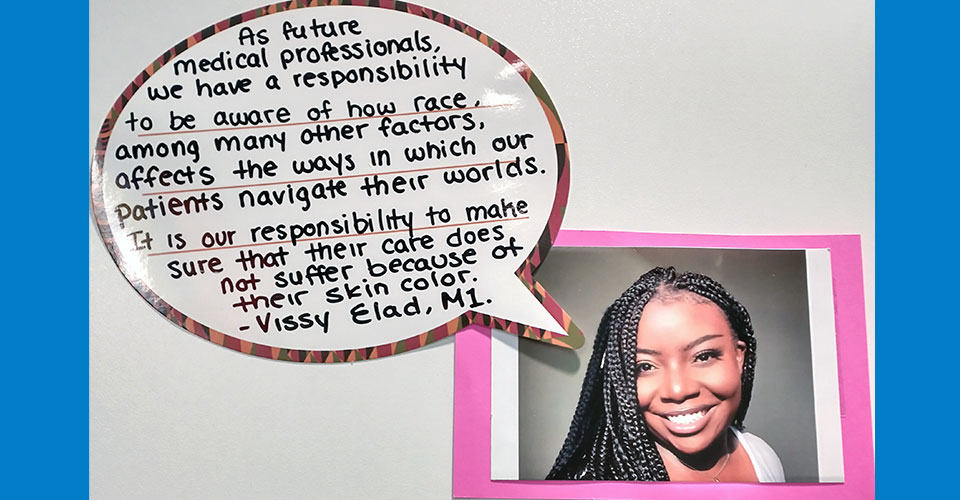 As future
medical professionals,
we have a responsibility
to be aware of how race,
among many other factors,
affects the ways in which our
patients navigate their worlds.
It is our responsibility to make
sure that their care does
not suffer because of
their skin color.
- Vissy Elad, M1.